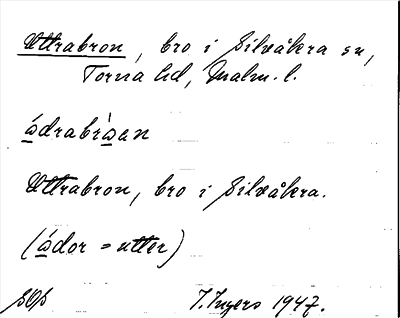 Uttrabron, bro i Silvåkra sn,
Torna hd, Malm. l.
ådrabråan
Uttrabron, bro i Silvåkra.
(ådor = utter)
I. Ingers 1947.